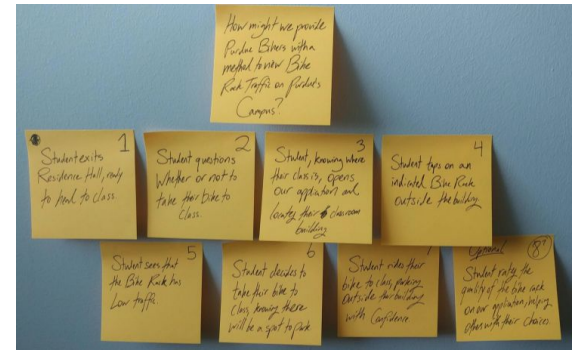 How might we provide
Purdue Bikers with a
method to view Bike
Rack Traffic on Purdue's
Campus?
1
Student exits
Residence Hall, ready
to head to class.
2
Student questions
Whether or not to
take their bike to
Class.
3
Student, knowing where
their class is, opens
our application and
locates their classroom
building
4
Student taps on an
indicated Bike Rack
outside the building.
5
Student sees that
the Bike Rack has
Low traffic.
6
Student decides to
take their bike to
class, knowing there
will be a spot to park
7
Student rides their
bike to class, parking
outside their building
with Confidence.
Optional
8?
Student rates the
quality of the bike rack
on our application, helping
others with their choices.